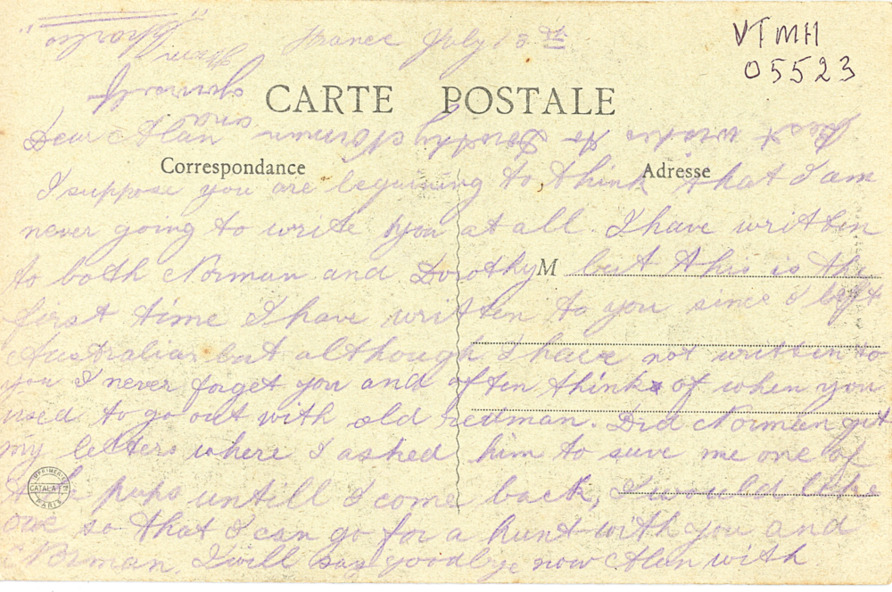 France July 13th
VTMH
05523
CARTE POSTALE
Dear Alan
Correspondance
Adresse
I suppose you are beguining to think that I am
never going to write you at all. I have written
to both Norman and Dorothy but this is the
M
first time I have written to you since I left
Australia but although I have not written to
you I never forget you and often think of when you
used to go out with old redman. Did Norman get
my letters where I asked him to save me one of
the pups untill I come back, I would like
one so that I can go for a hunt with you and
Norman. I will say goodbye now Alan with
best wishes to Dorothy Norman and
yourself
From
"Charlie"
CATALA
PARIS